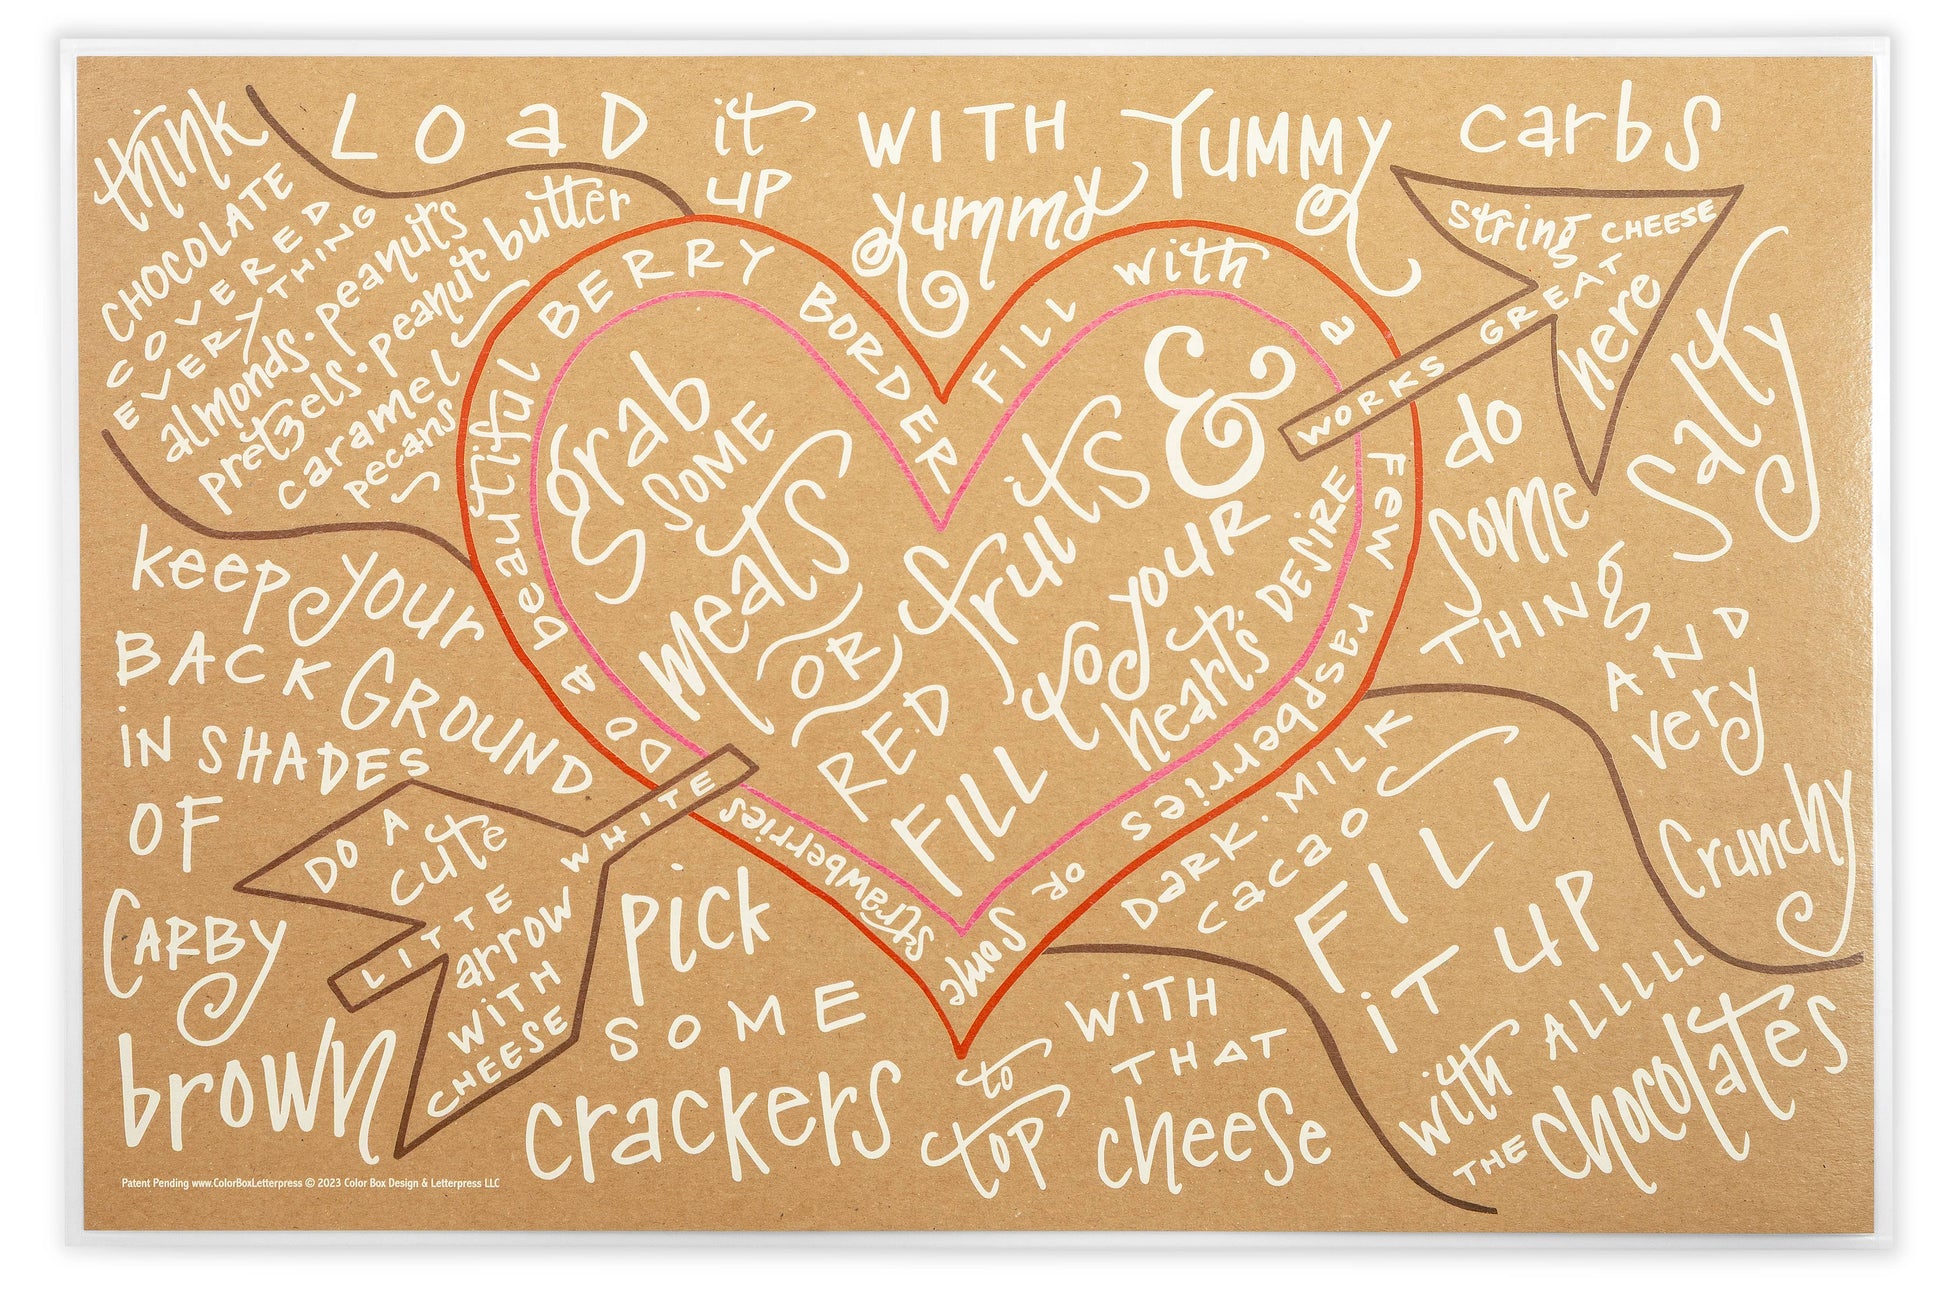 think
CHOCOLATE
COVERED
EVERYTHING
almonds · peanuts
pretzels · peanut butter
caramel
pecans
LOAD it UP
WITH YUMMY yummy carbs
String CHEESE
WORKS GREAT
here
DO a beautiful BERRY BORDER
FILL with a Few raspberries
OR Some strawberries
Grab
SOME
meats
OR
RED
fruits
&
FILL to YOUR
heart's DESIRE
do
some
THING
Salty
AND
very
Crunchy
keep your
BACKGROUND
IN SHADES
OF
CARBY
brown
DO A
cute
LITTLE WHITE
arrow
WITH
CHEESE
pick
SOME
crackers
to
TOP
WITH
THAT
cheese
DARK · MILK
cacao
FILL
iT UP
with ALLLLL
THE chocolates
Patent Pending www.ColorBoxLetterpress © 2023 Color Box Design & Letterpress LLC